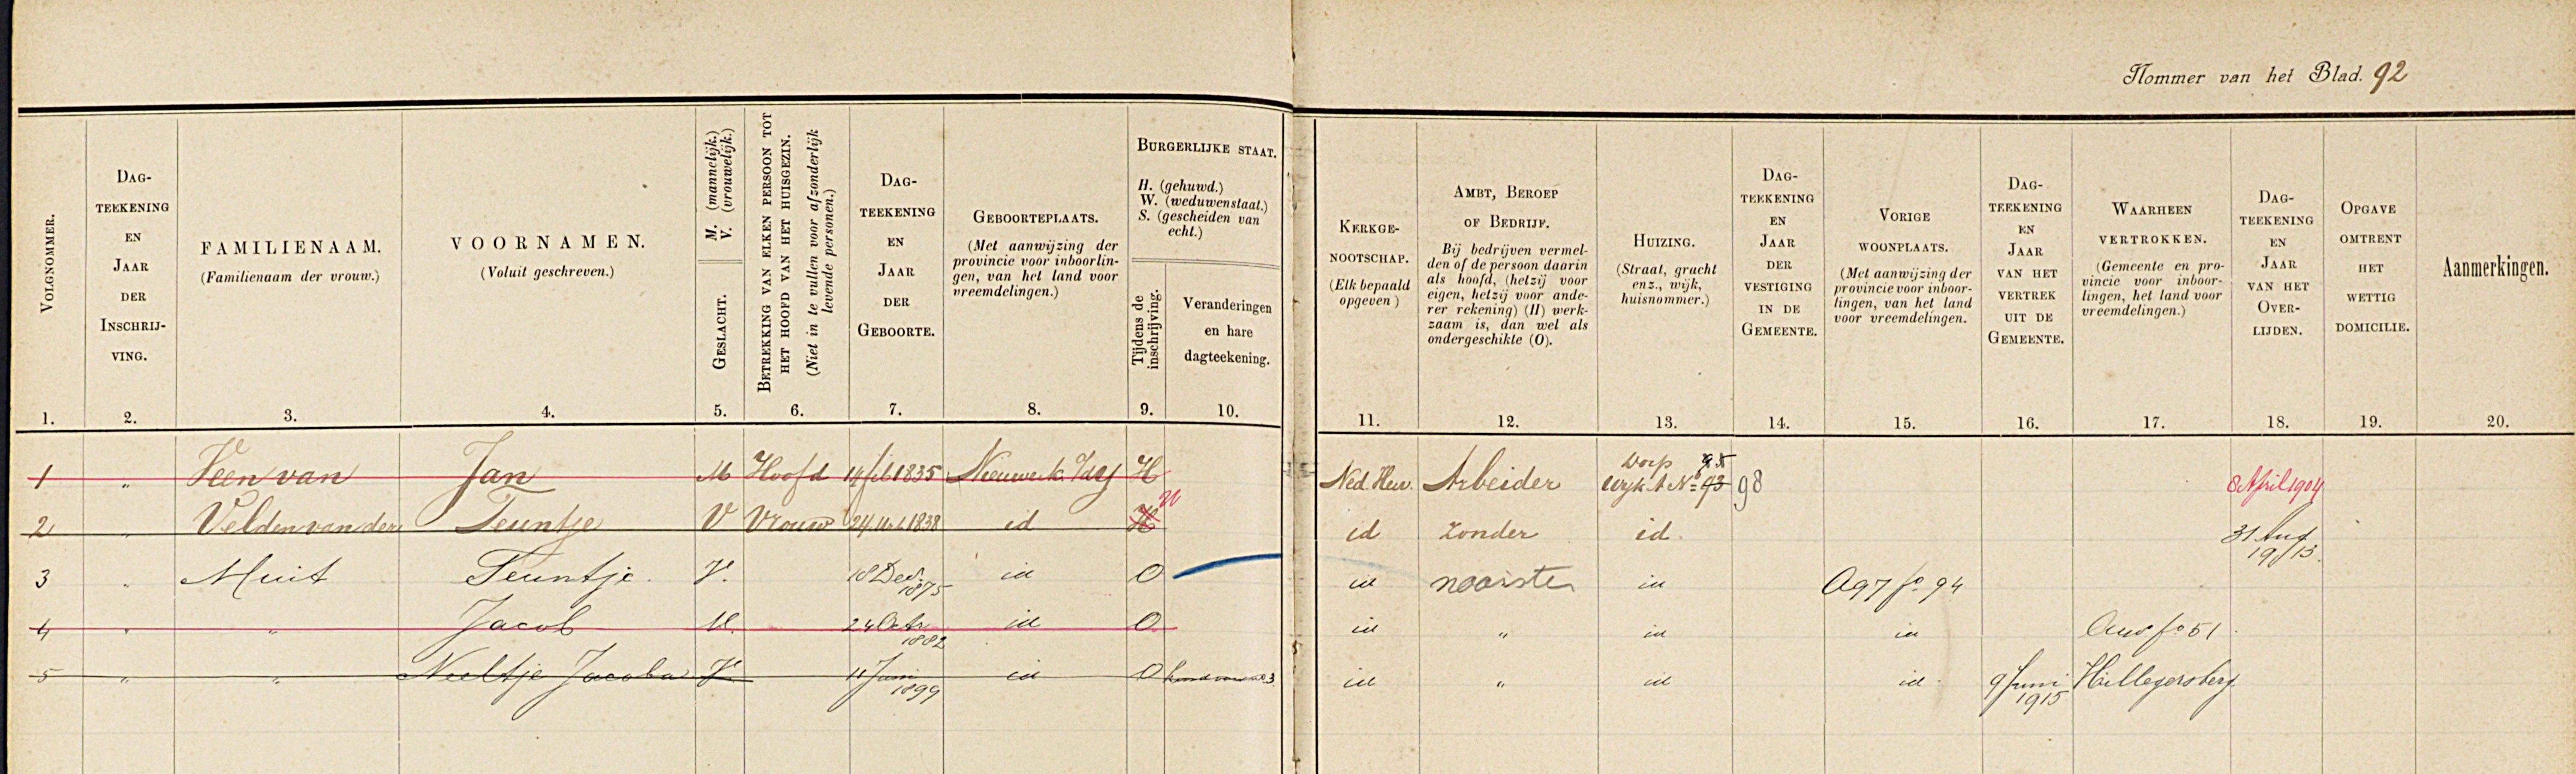 Nommer van het Blad. 92
VOLGNOMMER.
DAG-
TEEKENING
EN
JAAR
DER
INSCHRIJ-
VING.
FAMILIENAAM.
(Familienaam der vrouw.)
VOORNAMEN.
(Voluit geschreven.)
M. (mannelijk.)
V. (vrouwelijk.)
GESLACHT.
BETREKKING VAN ELKEN PERSOON TOT
HET HOOFD VAN HET HUISGEZIN.
(Niet in te vullen voor afzonderlijk
levende personen.)
DAG-
TEEKENING
EN
JAAR
DER
GEBOORTE.
GEBOORTEPLAATS.
(Met aanwijzing der
provincie voor inboorlin-
gen, van het land voor
vreemdelingen.)
BURGERLIJKE STAAT.
H. (gehuwd.)
W. (weduwenstaat.)
S. (gescheiden van
echt.)
Tijdens de
inschrijving.
Veranderingen
en hare
dagteekening.
KERKGE-
NOOTSCHAP.
(Elk bepaald
opgeven)
AMBT, BEROEP
OF BEDRIJF.
Bij bedrijven vermel-
den of de persoon daarin
als hoofd, (hetzij voor
eigen, hetzij voor ande-
rer rekening) (H) werk-
zaam is, dan wel als
ondergeschikte (O).
HUIZING.
(Straat, gracht
enz., wijk,
huisnommer.)
DAG-
TEEKENING
EN
JAAR
DER
VESTIGING
IN DE
GEMEENTE.
VORIGE
WOONPLAATS.
(Met aanwijzing der
provincie voor inboor-
lingen, van het land
voor vreemdelingen.
DAG-
TEEKENING
EN
JAAR
VAN HET
VERTREK
UIT DE
GEMEENTE.
WAARHEEN
VERTROKKEN.
(Gemeente en pro-
vincie voor inboor-
lingen, het land voor
vreemdelingen.)
DAG-
TEEKENING
EN
JAAR
VAN HET
OVER-
LIJDEN.
OPGAVE
OMTRENT
HET
WETTIG
DOMICILIE.
Aanmerkingen.
1. 2. 3. 4. 5. 6. 7. 8. 9. 10. 11. 12. 13. 14. 15. 16. 17. 18. 19. 20.
1 " Veen van Jan M Hoofd 14 feb 1835 Nieuwerk. a/d ij H Ned. Herv. Arbeider Dorp 95 Wijk A No 93 98 8 April 1904
2 " Velden van der Teuntje V Vrouw 24 1838 id H W id zonder id 31 Aug 1913
3 " Muit Teuntje. V. 18 Dec. 1875 id O id naaister id A97 fo 94
4 " " Jacob M. 24 Octr 1882 id O id " id id fo 51
5 " " Neeltje Jacoba V. 11 Juni 1899 id O 3 id " id id 9 Juni 1915 Hillegersberg